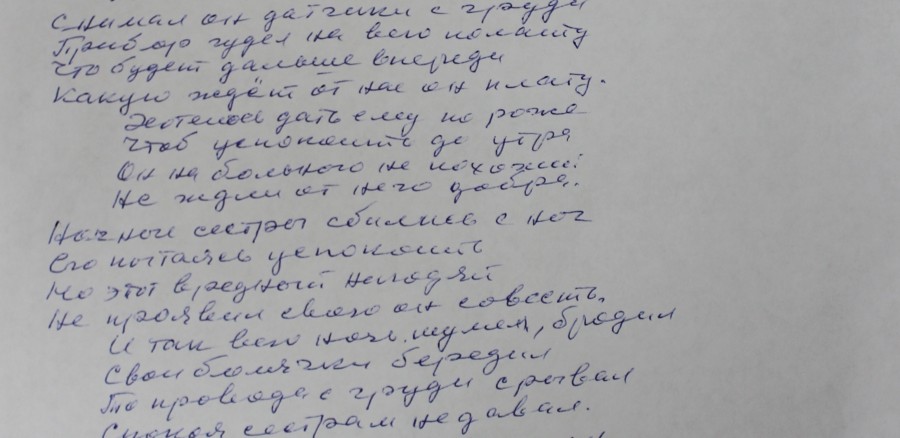 Снимал он датчики с груди
Прибор гудел на всю палату
Что будет дальше впереди
Какую ждёт от нас он плату.
Хотелось дать ему по роже
Чтоб успокоить до утра
Он на больного не похожий
Не ждли от него добра.
Ночные сестры сбились с ног
Его пытаясь успокоить
Но этот вредный негодяй
Не проявил свою он совесть.
И так всю ночь шумел, бродил
Свои болячки бередил
То провода с груди срывал
Спокоя сестрам не давал.